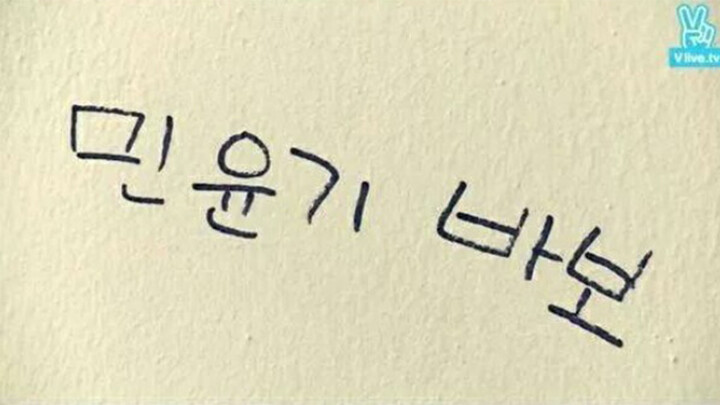 V live.tv
민윤기 바보